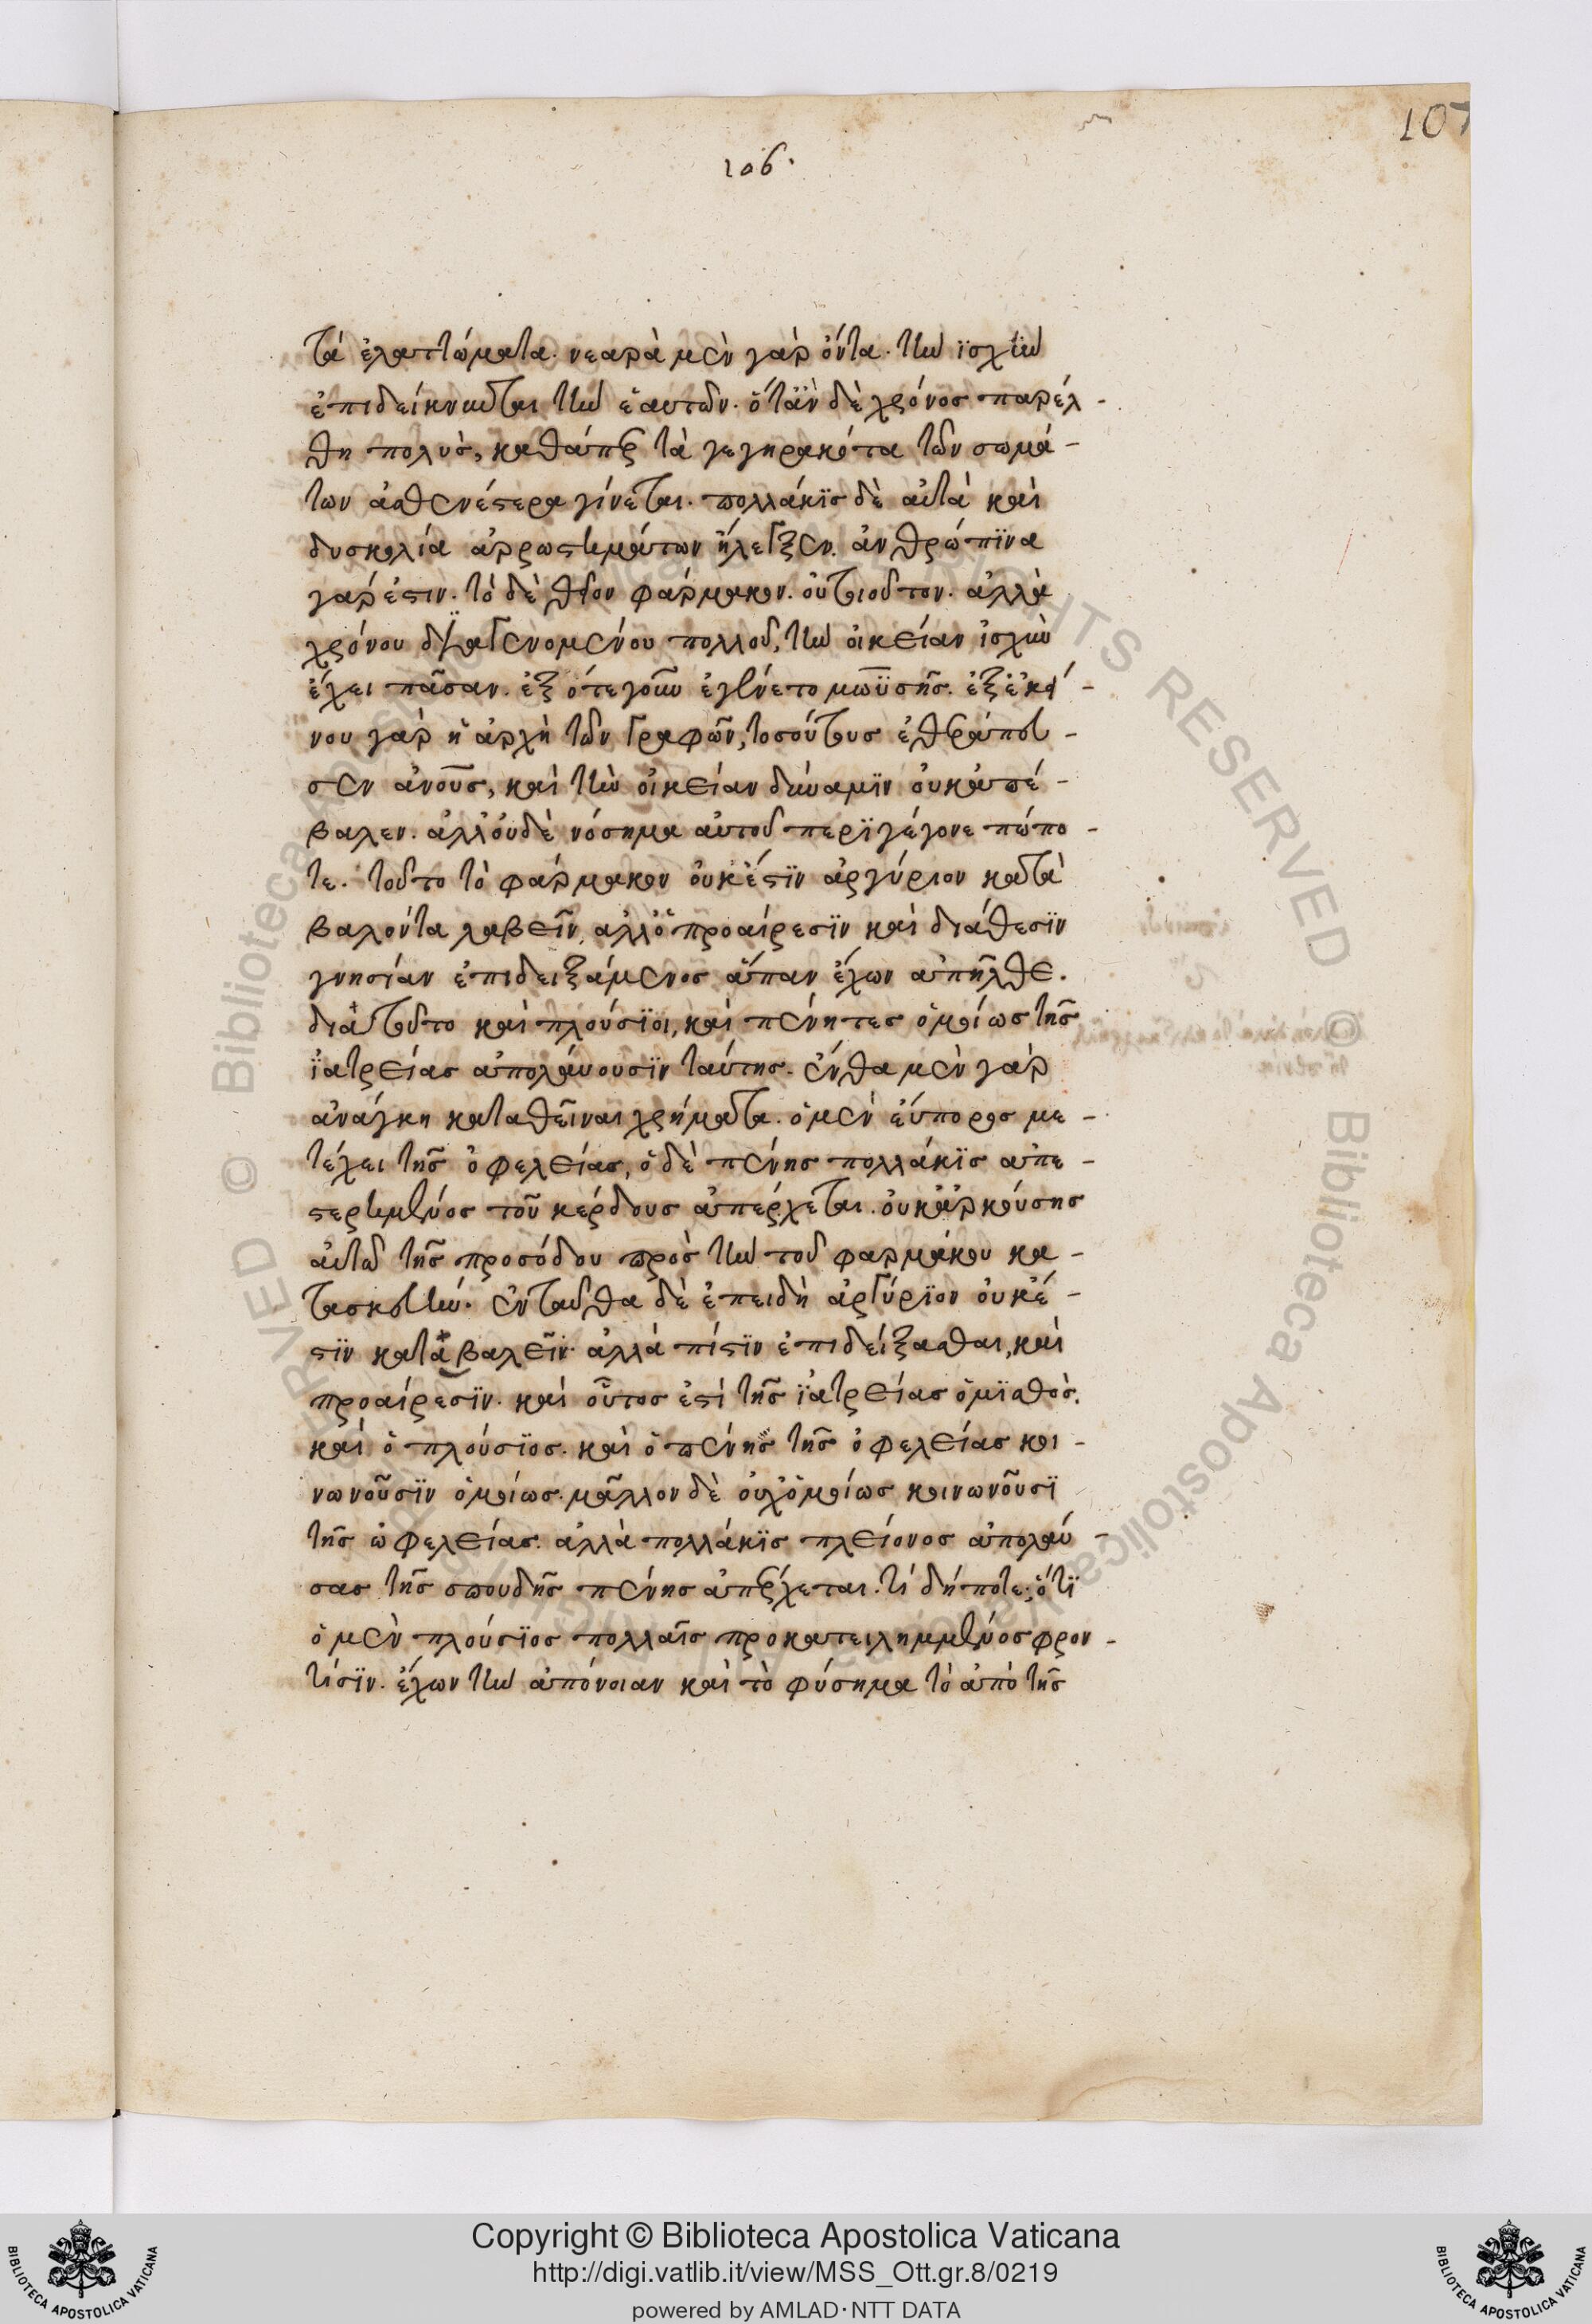 107
106.
τὰ ἐλαττώματα. νεαρὰ μὲν γὰρ ὄντα. τὴν ἰσχὺν
ἐπιδείκνυται τὴν ἑαυτῶν. ὅταν δὲ χρόνος παρέλ-
θη πολὺς, καθάπερ τὰ γεγηρακότα τῶν σωμά-
των ἀσθενέστερα γίνεται. πολλάκϊς δὲ αὐτὰ καὶ
δυσκολία ἀρρωστημάτων ἤλεγξεν. ἀνθρώπϊνα
γάρ ἐστιν. τὸ δὲ θεῖον φάρμακον. οὐ τοιοῦτον. ἀλλὰ
χρόνου διαγενομένου πολλοῦ, τὴν οἰκείαν ἰσχὺν
ἔχει πᾶσαν. ἐξ ότε γοῦν ἐγένετο μωϋσῆς. ἐξ ἐκεί-
νου γὰρ ἡ ἀρχὴ τῶν γραφῶν, τοσούτους ἐθεράπευ-
σεν ἀνους, καὶ τὴν οἰκείαν δύναμϊν οὐκ ἀπέ-
βαλεν. ἀλλ' οὐδὲ νόσημα αὐτοῦ περϊγέγονε πώπο-
τε. τοῦτο τὸ φάρμακον οὐκ έστϊν ἀργύριον κατα
βαλόντα λαβεῖν, ἀλλ' ὁ προαίρεσϊν καὶ διάθεσϊν
γνησίαν ἐπιδειξάμενος ἅπαν ἔχων ἀπῆλθε.
διὰ τοῦτο καὶ πλούσϊοι, καὶ πένητες ὁμοίως τῆς
ϊατρείας ἀπολάυουσϊν ταύτης. ἔνθα μὲν γὰρ
ἀνάγκη καταθεῖναι χρήματα. ὁ μὲν εὔπορος με-
τέχει τῆς ὀφελείας, ὁ δὲ πένης πολλάκϊς ἀπε-
στερημένος τοῦ κέρδους ἀπέρχεται. οὐκ ἀρκούσης
αὐτῶ τῆς προσόδου πρὸς τὴν τοῦ φαρμάκου κα-
τασκευήν. ἐνταῦθα δὲ ἐπειδὴ ἀργύρϊον οὐκ έ-
στϊν καταβαλεῖν ἀλλὰ πίστϊν ἐπιδείξασθαι, καὶ
προαίρεσϊν. καὶ οὗτος ἐστί τῆς ϊατρείας ὁ μϊσθὸς.
καὶ ὁ πλούσϊος. καὶ ὁ πένης τῆς ὀφελείας κοι-
νωνοῦσϊν ὁμοίως. μᾶλλον δὲ οὐχ ὁμοίως κοινωνοῦσϊ
τῆς ὠφελείας. ἀλλὰ πολλάκϊς πλείονος ἀπολαύ-
σας τῆς σπουδῆς πένης ἀπέρχεται. τί δήποτε; ὅτϊ
ὁ μὲν πλούσϊος πολλαῖς προκατειλημμένος φρον-
τίσϊν. ἔχων τὴν ἀπόνοιαν καὶ τὸ φύσημα τὸ ἀπὸ τῆς
Copyright © Biblioteca Apostolica Vaticana
http://digi.vatlib.it/view/MSS_Ott.gr.8/0219
powered by AMLAD·NTT DATA